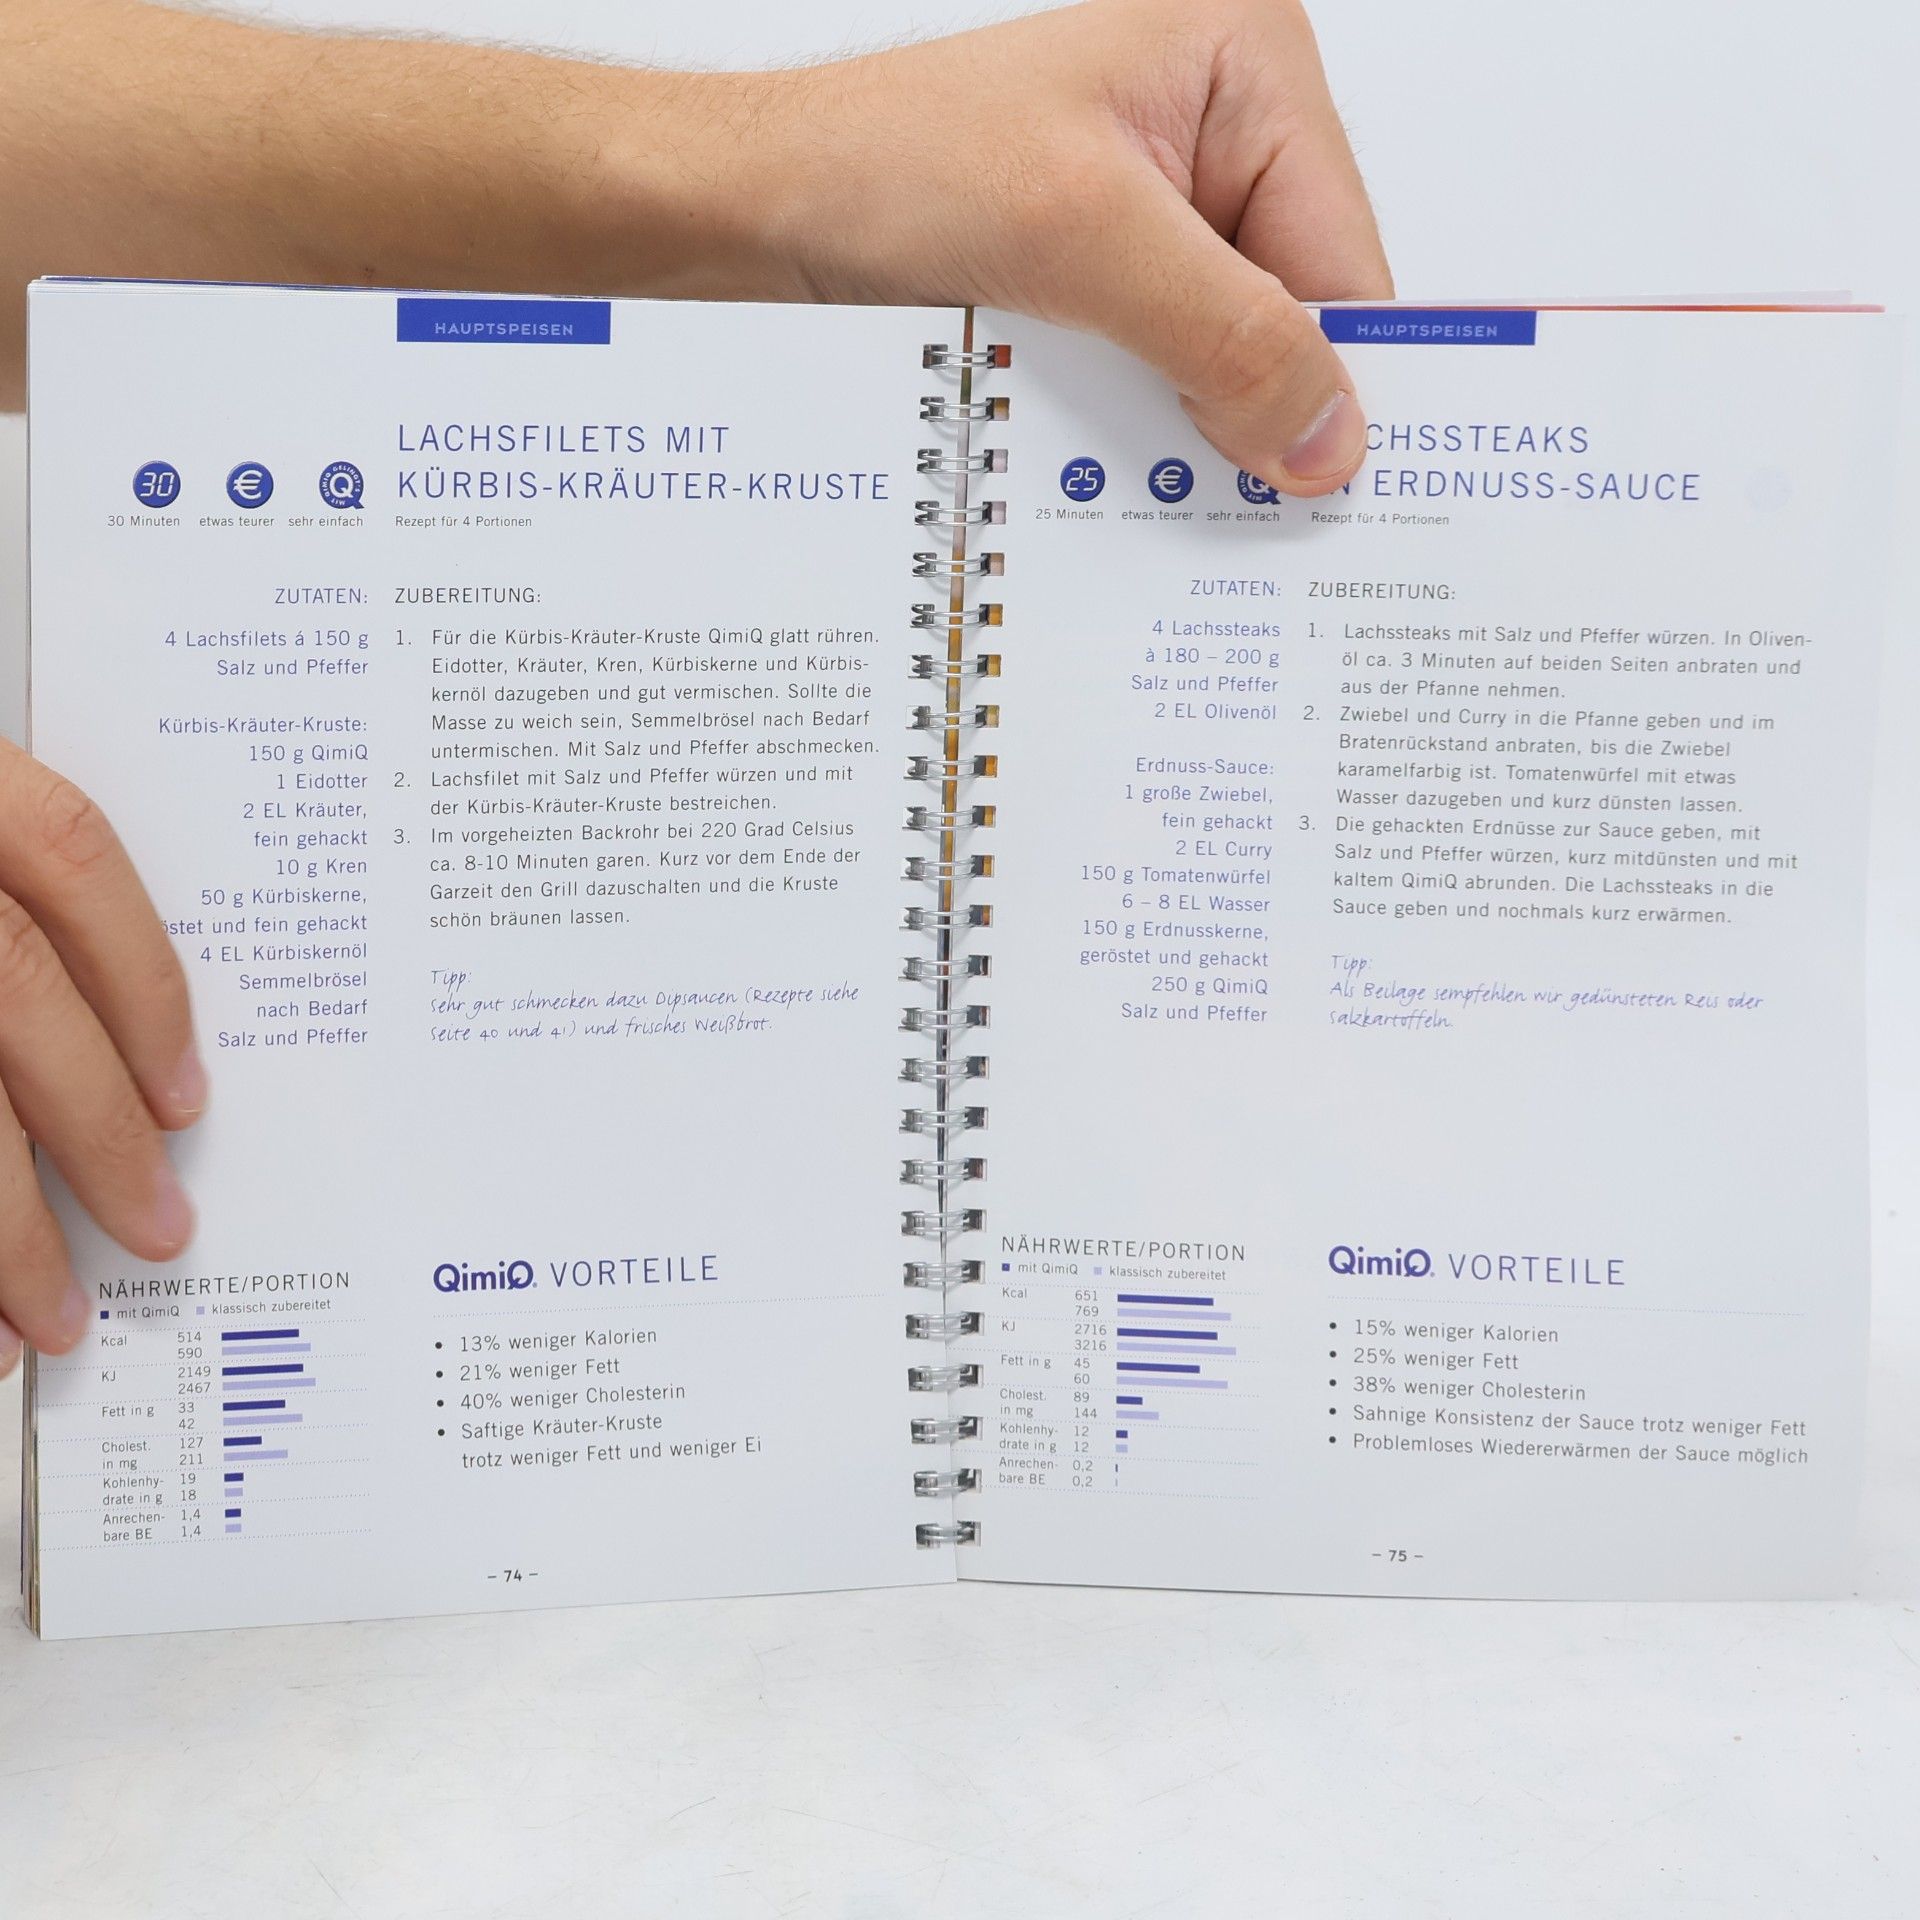 HAUPTSPEISEN
LACHSFILETS MIT
KÜRBIS-KRÄUTER-KRUSTE
30
€
Q
MIT QIMIQ GELINGT'S
30 Minuten
etwas teurer
sehr einfach
Rezept für 4 Portionen
ZUTATEN:
4 Lachsfilets á 150 g
Salz und Pfeffer
Kürbis-Kräuter-Kruste:
150 g QimiQ
1 Eidotter
2 EL Kräuter,
fein gehackt
10 g Kren
50 g Kürbiskerne,
und fein gehackt
4 EL Kürbiskernöl
Semmelbrösel
nach Bedarf
Salz und Pfeffer
ZUBEREITUNG:
1. Für die Kürbis-Kräuter-Kruste QimiQ glatt rühren.
Eidotter, Kräuter, Kren, Kürbiskerne und Kürbis-
kernöl dazugeben und gut vermischen. Sollte die
Masse zu weich sein, Semmelbrösel nach Bedarf
untermischen. Mit Salz und Pfeffer abschmecken.
2. Lachsfilet mit Salz und Pfeffer würzen und mit
der Kürbis-Kräuter-Kruste bestreichen.
3. Im vorgeheizten Backrohr bei 220 Grad Celsius
ca. 8-10 Minuten garen. Kurz vor dem Ende der
Garzeit den Grill dazuschalten und die Kruste
schön bräunen lassen.
Tipp:
Sehr gut schmecken dazu Dipsaucen (Rezepte siehe
Seite 40 und 41) und frisches Weißbrot.
NÄHRWERTE/PORTION
mit QimiQ klassisch zubereitet
Kcal 514
590
KJ 2149
2467
Fett in g 33
42
Cholest. 127
in mg 211
Kohlenhy- 19
drate in g 18
Anrechen- 1,4
bare BE 1,4
QimiQ® VORTEILE
• 13% weniger Kalorien
• 21% weniger Fett
• 40% weniger Cholesterin
• Saftige Kräuter-Kruste
trotz weniger Fett und weniger Ei
– 74 –
HAUPTSPEISEN
CHSSTEAKS
ERDNUSS-SAUCE
25
€
25 Minuten
etwas teurer
sehr einfach
Rezept für 4 Portionen
ZUTATEN:
4 Lachssteaks
à 180 – 200 g
Salz und Pfeffer
2 EL Olivenöl
Erdnuss-Sauce:
1 große Zwiebel,
fein gehackt
2 EL Curry
150 g Tomatenwürfel
6 – 8 EL Wasser
150 g Erdnusskerne,
geröstet und gehackt
250 g QimiQ
Salz und Pfeffer
ZUBEREITUNG:
1. Lachssteaks mit Salz und Pfeffer würzen. In Oliven-
öl ca. 3 Minuten auf beiden Seiten anbraten und
aus der Pfanne nehmen.
2. Zwiebel und Curry in die Pfanne geben und im
Bratenrückstand anbraten, bis die Zwiebel
karamelfarbig ist. Tomatenwürfel mit etwas
Wasser dazugeben und kurz dünsten lassen.
3. Die gehackten Erdnüsse zur Sauce geben, mit
Salz und Pfeffer würzen, kurz mitdünsten und mit
kaltem QimiQ abrunden. Die Lachssteaks in die
Sauce geben und nochmals kurz erwärmen.
Tipp:
Als Beilage sempfehlen wir gedünsteten Reis oder
Salzkartoffeln.
NÄHRWERTE/PORTION
mit QimiQ klassisch zubereitet
Kcal 651
769
KJ 2716
3216
Fett in g 45
60
Cholest. 89
in mg 144
Kohlenhy- 12
drate in g 12
Anrechen- 0,2
bare BE 0,2
QimiQ® VORTEILE
• 15% weniger Kalorien
• 25% weniger Fett
• 38% weniger Cholesterin
• Sahnige Konsistenz der Sauce trotz weniger Fett
• Problemloses Wiedererwärmen der Sauce möglich
– 75 –